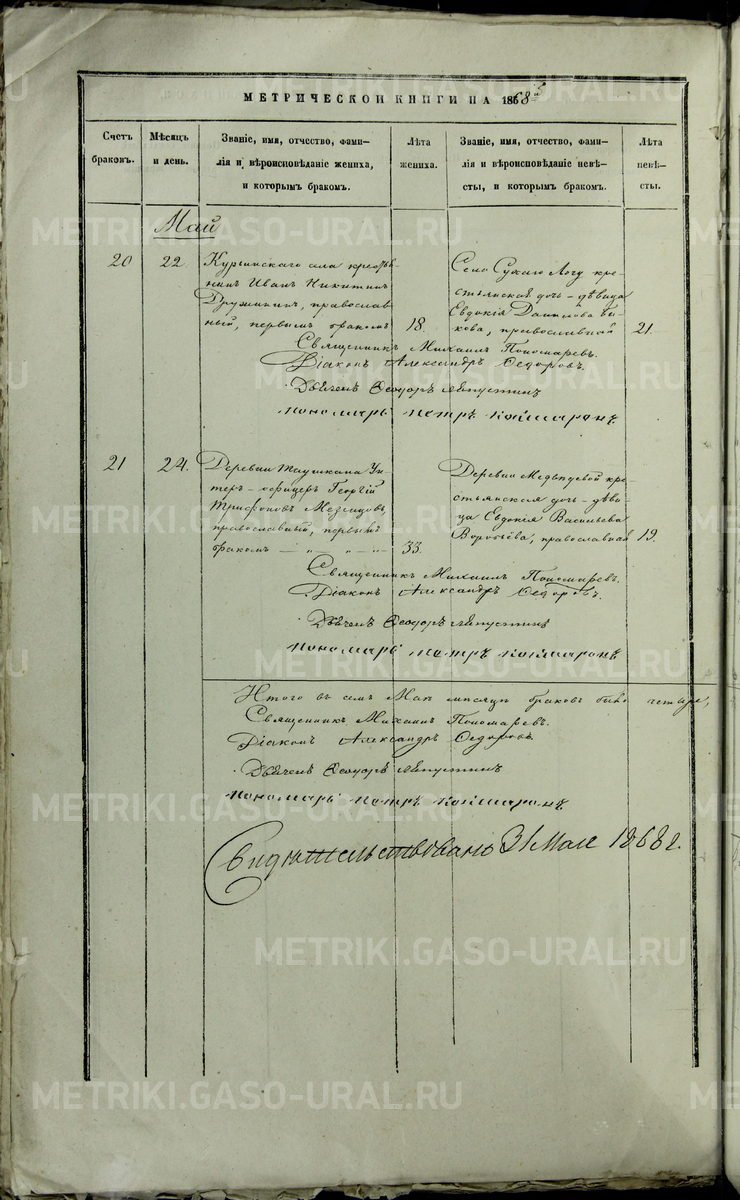 МЕТРИЧЕСКОЙ КНИГИ НА 1868й
Счетъ браковъ.
Мѣсяцъ и день.
Званіе, имя, отчество, фами-
лія и вѣроисповѣданіе жениха,
и которымъ бракомъ.
Лѣта жениха.
Званіе, имя, отчество, фами-
лія и вѣроисповѣданіе невѣ-
сты, и которымъ бракомъ.
Лѣта невѣ-
сты.
Май
20 22.
Курьинскаго села кресть-
нинъ Иванъ Никитинъ
Дружининъ, православ-
ный, первымъ бракомъ
18.
Село Сухаго Логу кре-
стьянская дочь - дѣвица
Евдокія Данилова Бы-
кова, православной
21.
Священникъ Михаилъ Пономаревъ.
Діаконъ Александръ Седоровъ.
Дьячекъ Ѳеодоръ
Пономарь Петръ
21 24.
Деревни Таушкана Ун-
теръ - офицеръ Георгій
Трифоновъ Мезенцовъ,
православный, первымъ
бракомъ — „ — „ —
33.
Деревни Медвѣдевой кре-
стьянская дочь - дѣви-
ца Евдокія Васильева
Воробьева, православная
19.
Священникъ Михаилъ Пономаревъ.
Діаконъ Александръ Седоровъ.
Дьячекъ Ѳеодоръ
Пономарь Петръ
Итого въ семъ Маѣ мѣсяцѣ браковъ было четыре,
Священникъ Михаилъ Пономаревъ.
Діаконъ Александръ Седоровъ
Дьячекъ Ѳеодоръ
Пономарь Петръ
Свидѣтельствовано 31 Мая 1868 г.
METRIKI.GASO-URAL.RU